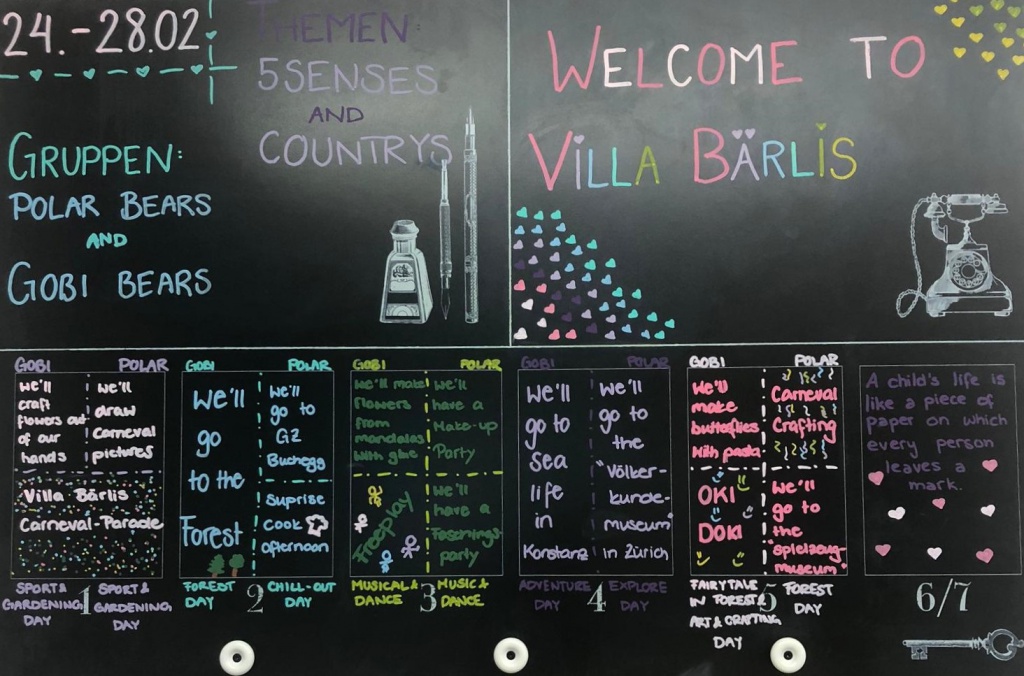 24.-28.02
THEMEN:
5 SENSES
AND
COUNTRYS
GRUPPEN:
POLAR BEARS
AND
GOBI BEARS
WELCOME TO
VILLA BÄRLIS
GOBI
we'll
craft
flowers out
of our
hands
POLAR
we'll
draw
carneval
pictures
Villa Bärlis
Carneval-Parade
SPORT &
GARDENING
DAY
1
SPORT &
GARDENING
DAY
GOBI
we'll
go
to the
Forest
POLAR
we'll
go to
GZ
Buchegg
Suprise
cook
afternoon
FOREST
DAY
2
CHILL-OUT
DAY
GOBI
we'll make
flowers
from
mandalas
with glue
Freeplay
POLAR
we'll
have a
Make-up
Party
we'll
have a
Fasnings-
party
MUSICAL &
DANCE
3
MUSIC &
DANCE
GOBI
we'll
go to
Sea
life
in
Konstanz
POLAR
we'll
go to
the
"Völker-
kunde-
museum"
in Zürich
ADVENTURE
DAY
4
EXPLORE
DAY
GOBI
we'll
make
butterflies
with pasta
OKI
DOKI
POLAR
Carneval
Crafting
we'll
go to
the
"spielzeug-
museum"
FAIRYTALE
IN FOREST &
ART & CRAFTING
DAY
5
FOREST
DAY
A child's life is
like a piece of
paper on which
every person
leaves a
mark.
6/7